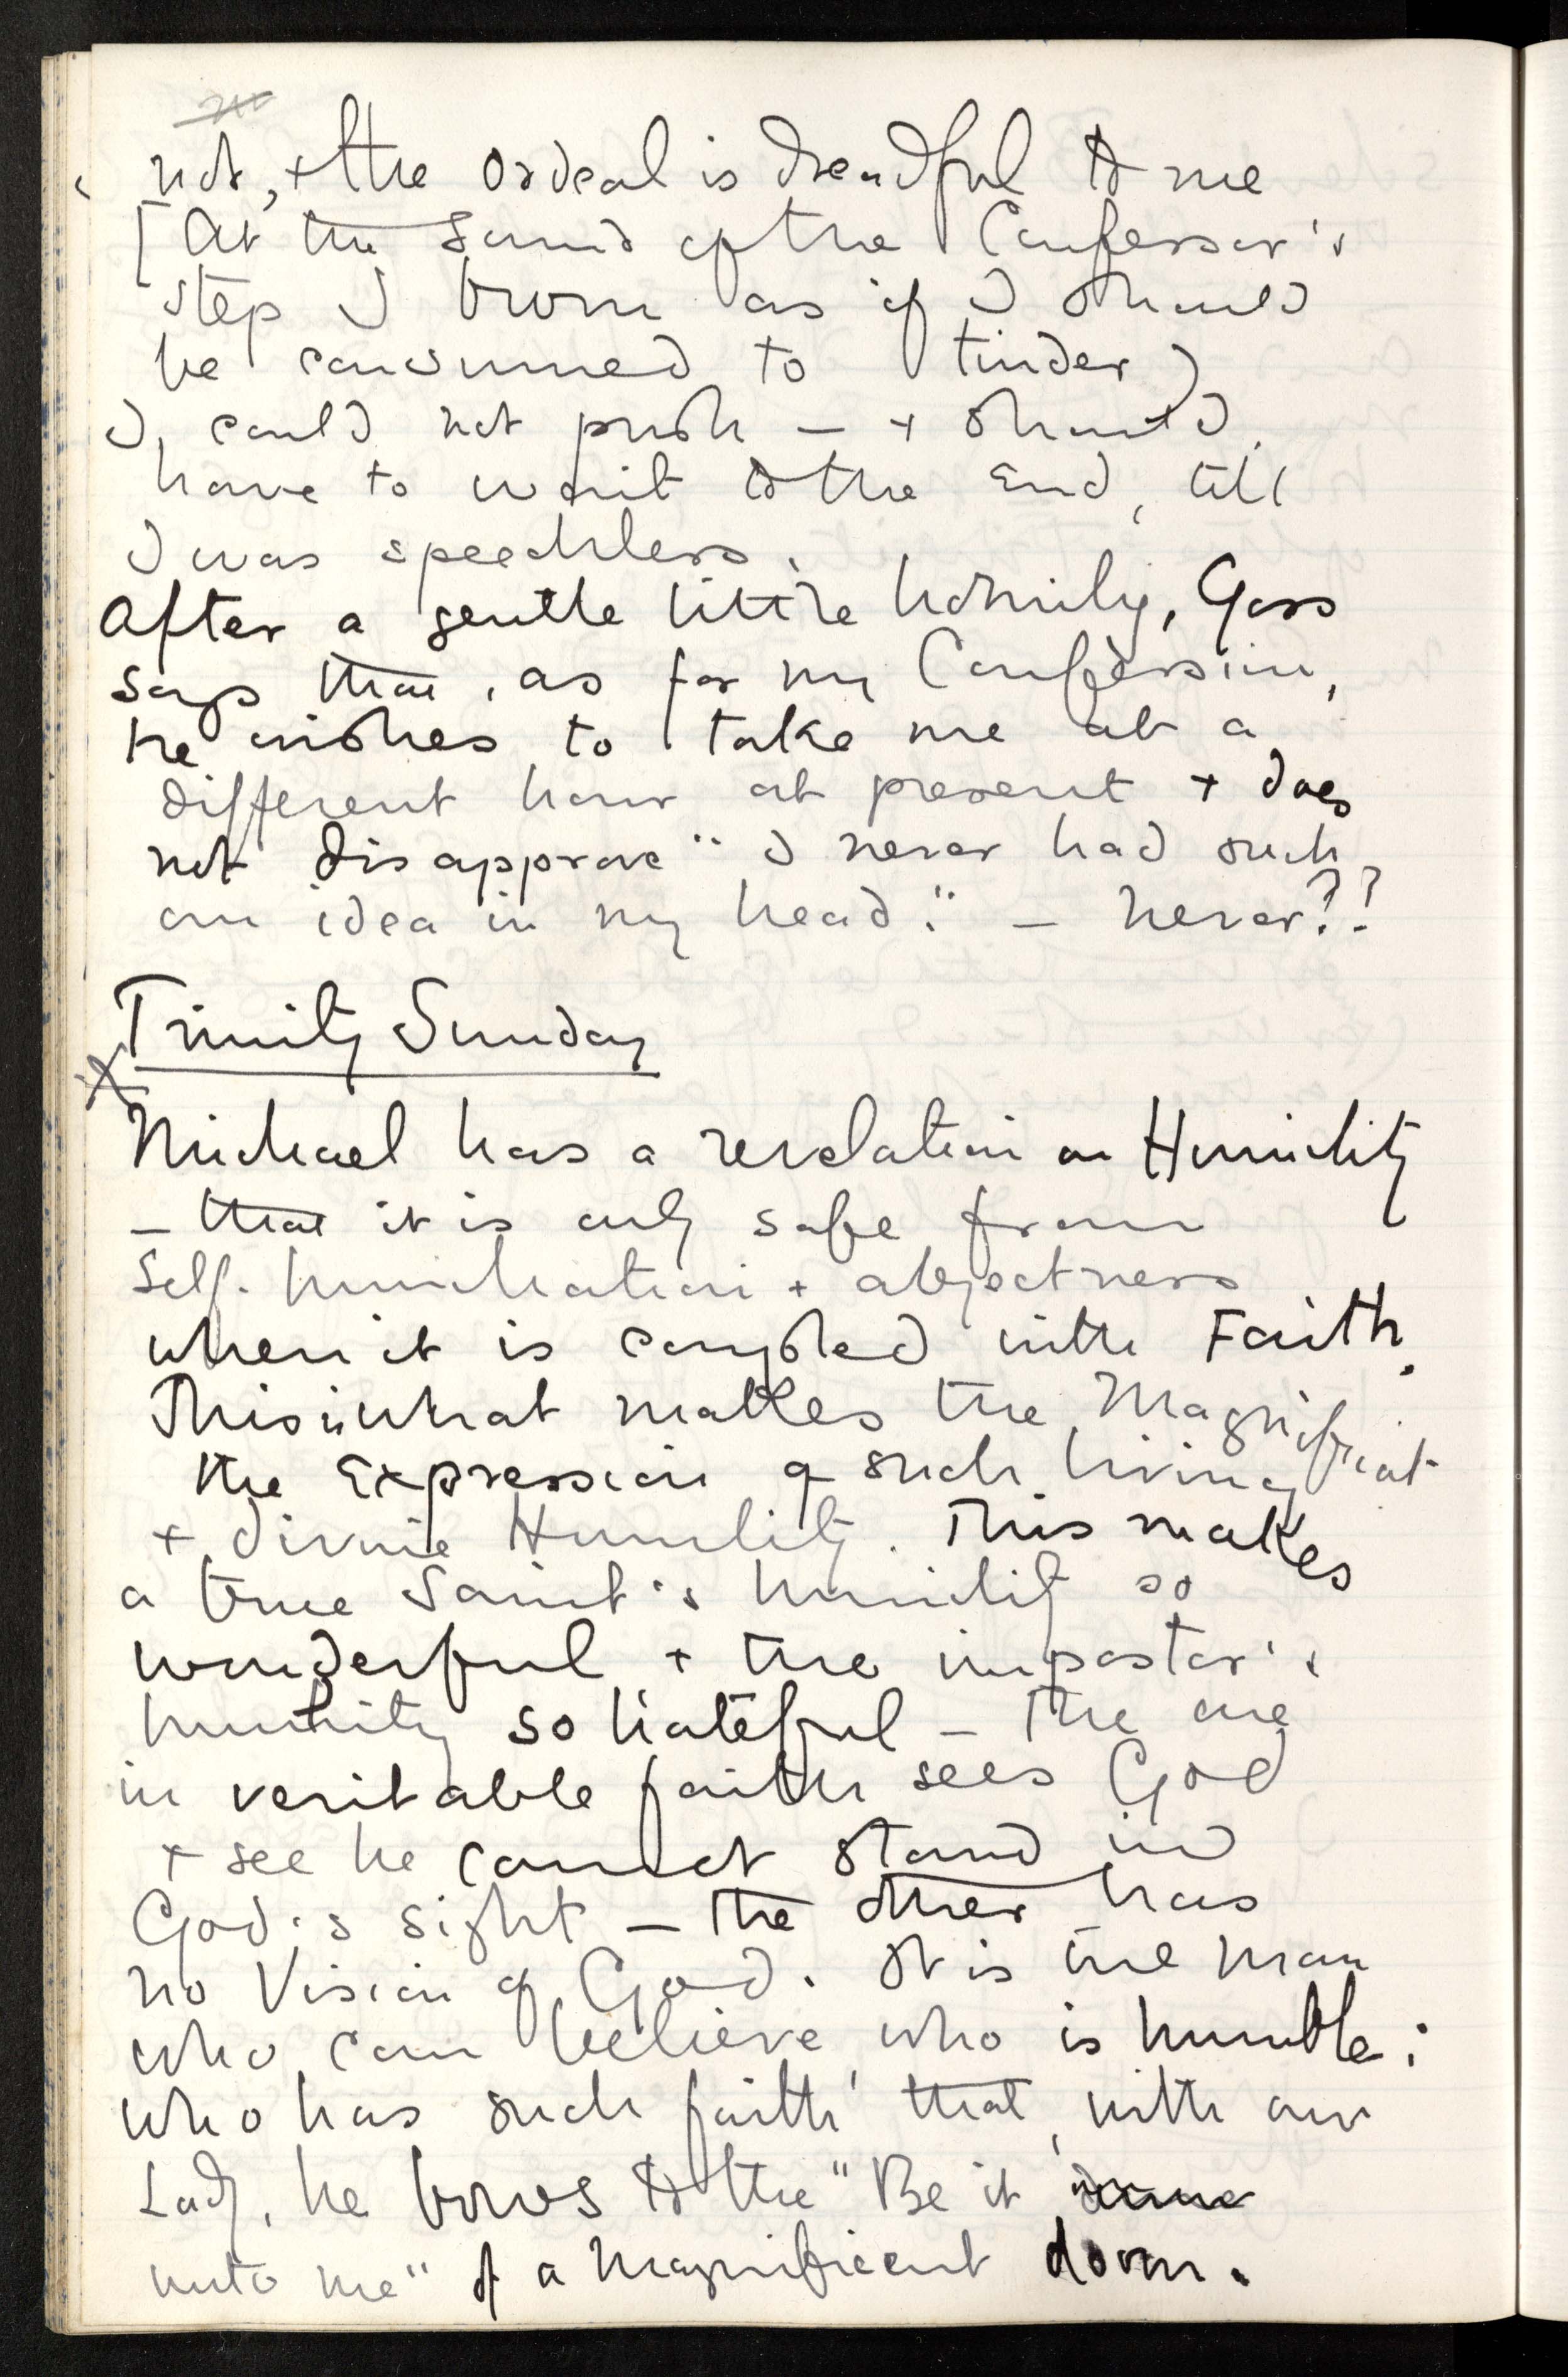 not, + the ordeal is dreadful to me
[At the sound of the Confessor's
step I burn as if I should
be consumed to tinder)
I, could not push – + should
have to wait to the end, till
I was speechless.
After a gentle little homily, Goss
says that, as for my Confession,
he wishes to take me at a
different hour at present + does
not disapprove " I never had such
an idea in my head." – never?!
Trinity Sunday
Michael has a revelation on Humility
– that it is only safe from
Self-humiliation + abjectness
when it is coupled with Faith.
This is what makes the Magnificat
the Expression of such living
+ divine Humility. This makes
a true Saint's humility so
wonderful + the impostor's
humility so hateful – The one
in veritable faith sees God
+ see he cannot stand in
God's sight – the other has
no Vision of God. It is the man
who can believe who is humble:
who has such faith that, with our
Lady, he bows to the "Be it done
unto me" of a magnificent doom.